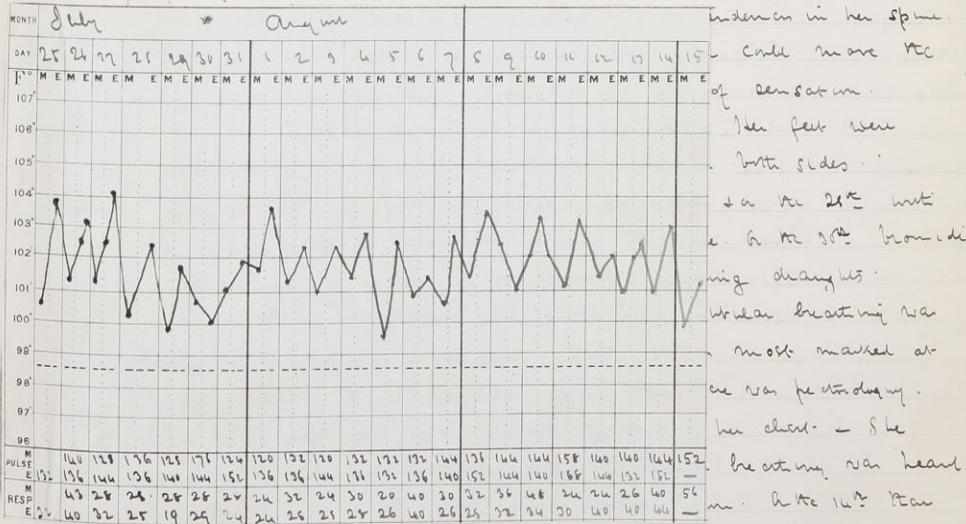 MONTH July August
DAY 25 26 27 28 29 30 31 1 2 3 4 5 6 7 8 9 10 11 12 13 14 15
F° M E M E M E M E M E M E M E M E M E M E M E M E M E M E M E M E M E M E M E M E M E M E
107°
106°
105°
104°
103°
102°
101°
100°
99°
98°
97°
96
PULSE M 140 128 136 128 176 124 120 132 120 132 132 132 144 136 144 144 158 140 140 144 152
E 132 136 144 136 140 144 152 136 136 144 136 132 136 140 152 144 140 168 144 132 152 —
RESP M 43 28 28 28 28 28 24 32 24 30 20 40 30 32 36 48 24 24 26 40 56
E 32 40 32 25 19 29 24 24 25 25 28 26 40 26 25 32 34 30 40 40 44 —
in her spine.
could move the
of sensation.
Her feet were
both sides.
on the 28th with
On the 30th
draughts.
breathing was
most marked at
was
her chest - She
breathing was heard
On the 14th